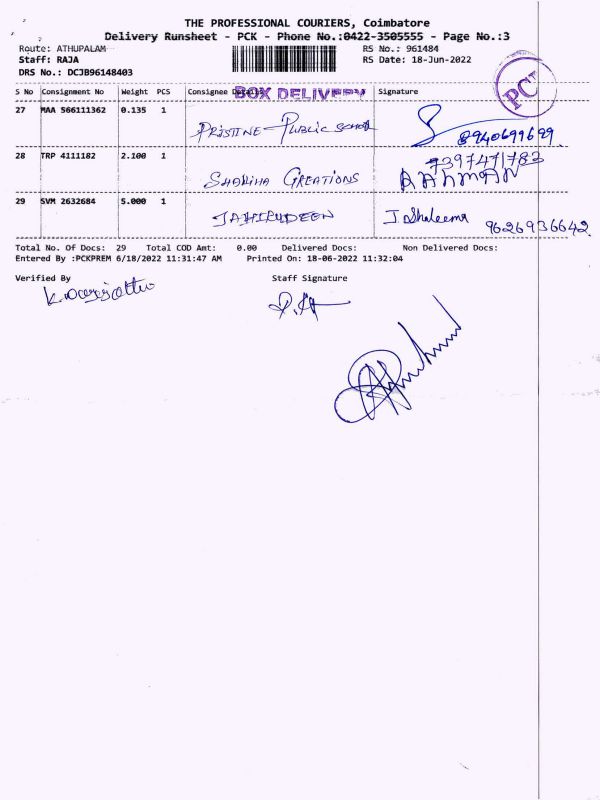 THE PROFESSIONAL COURIERS, Coimbatore
Delivery Runsheet - PCK - Phone No.:0422-3505555 - Page No.:3
Route: ATHUPALAM
RS No.: 961484
Staff: RAJA
RS Date: 18-Jun-2022
DRS No.: DCJB96148403
S No Consignment No Weight PCS Consignee Details Signature
BOX DELIVERY
PCK
27 MAA 566111362 0.135 1 PRISTINE PUBLIC School 8940699699
28 TRP 4111182 2.100 1 SHARIHA CREATIONS 7397471783
RAHMAN
29 SVM 2632684 5.000 1 JAHIRUDEEN J. Shaleema 9626936642
Total No. Of Docs: 29 Total COD Amt: 0.00 Delivered Docs: Non Delivered Docs:
Entered By :PCKPREM 6/18/2022 11:31:47 AM Printed On: 18-06-2022 11:32:04
Verified By Staff Signature